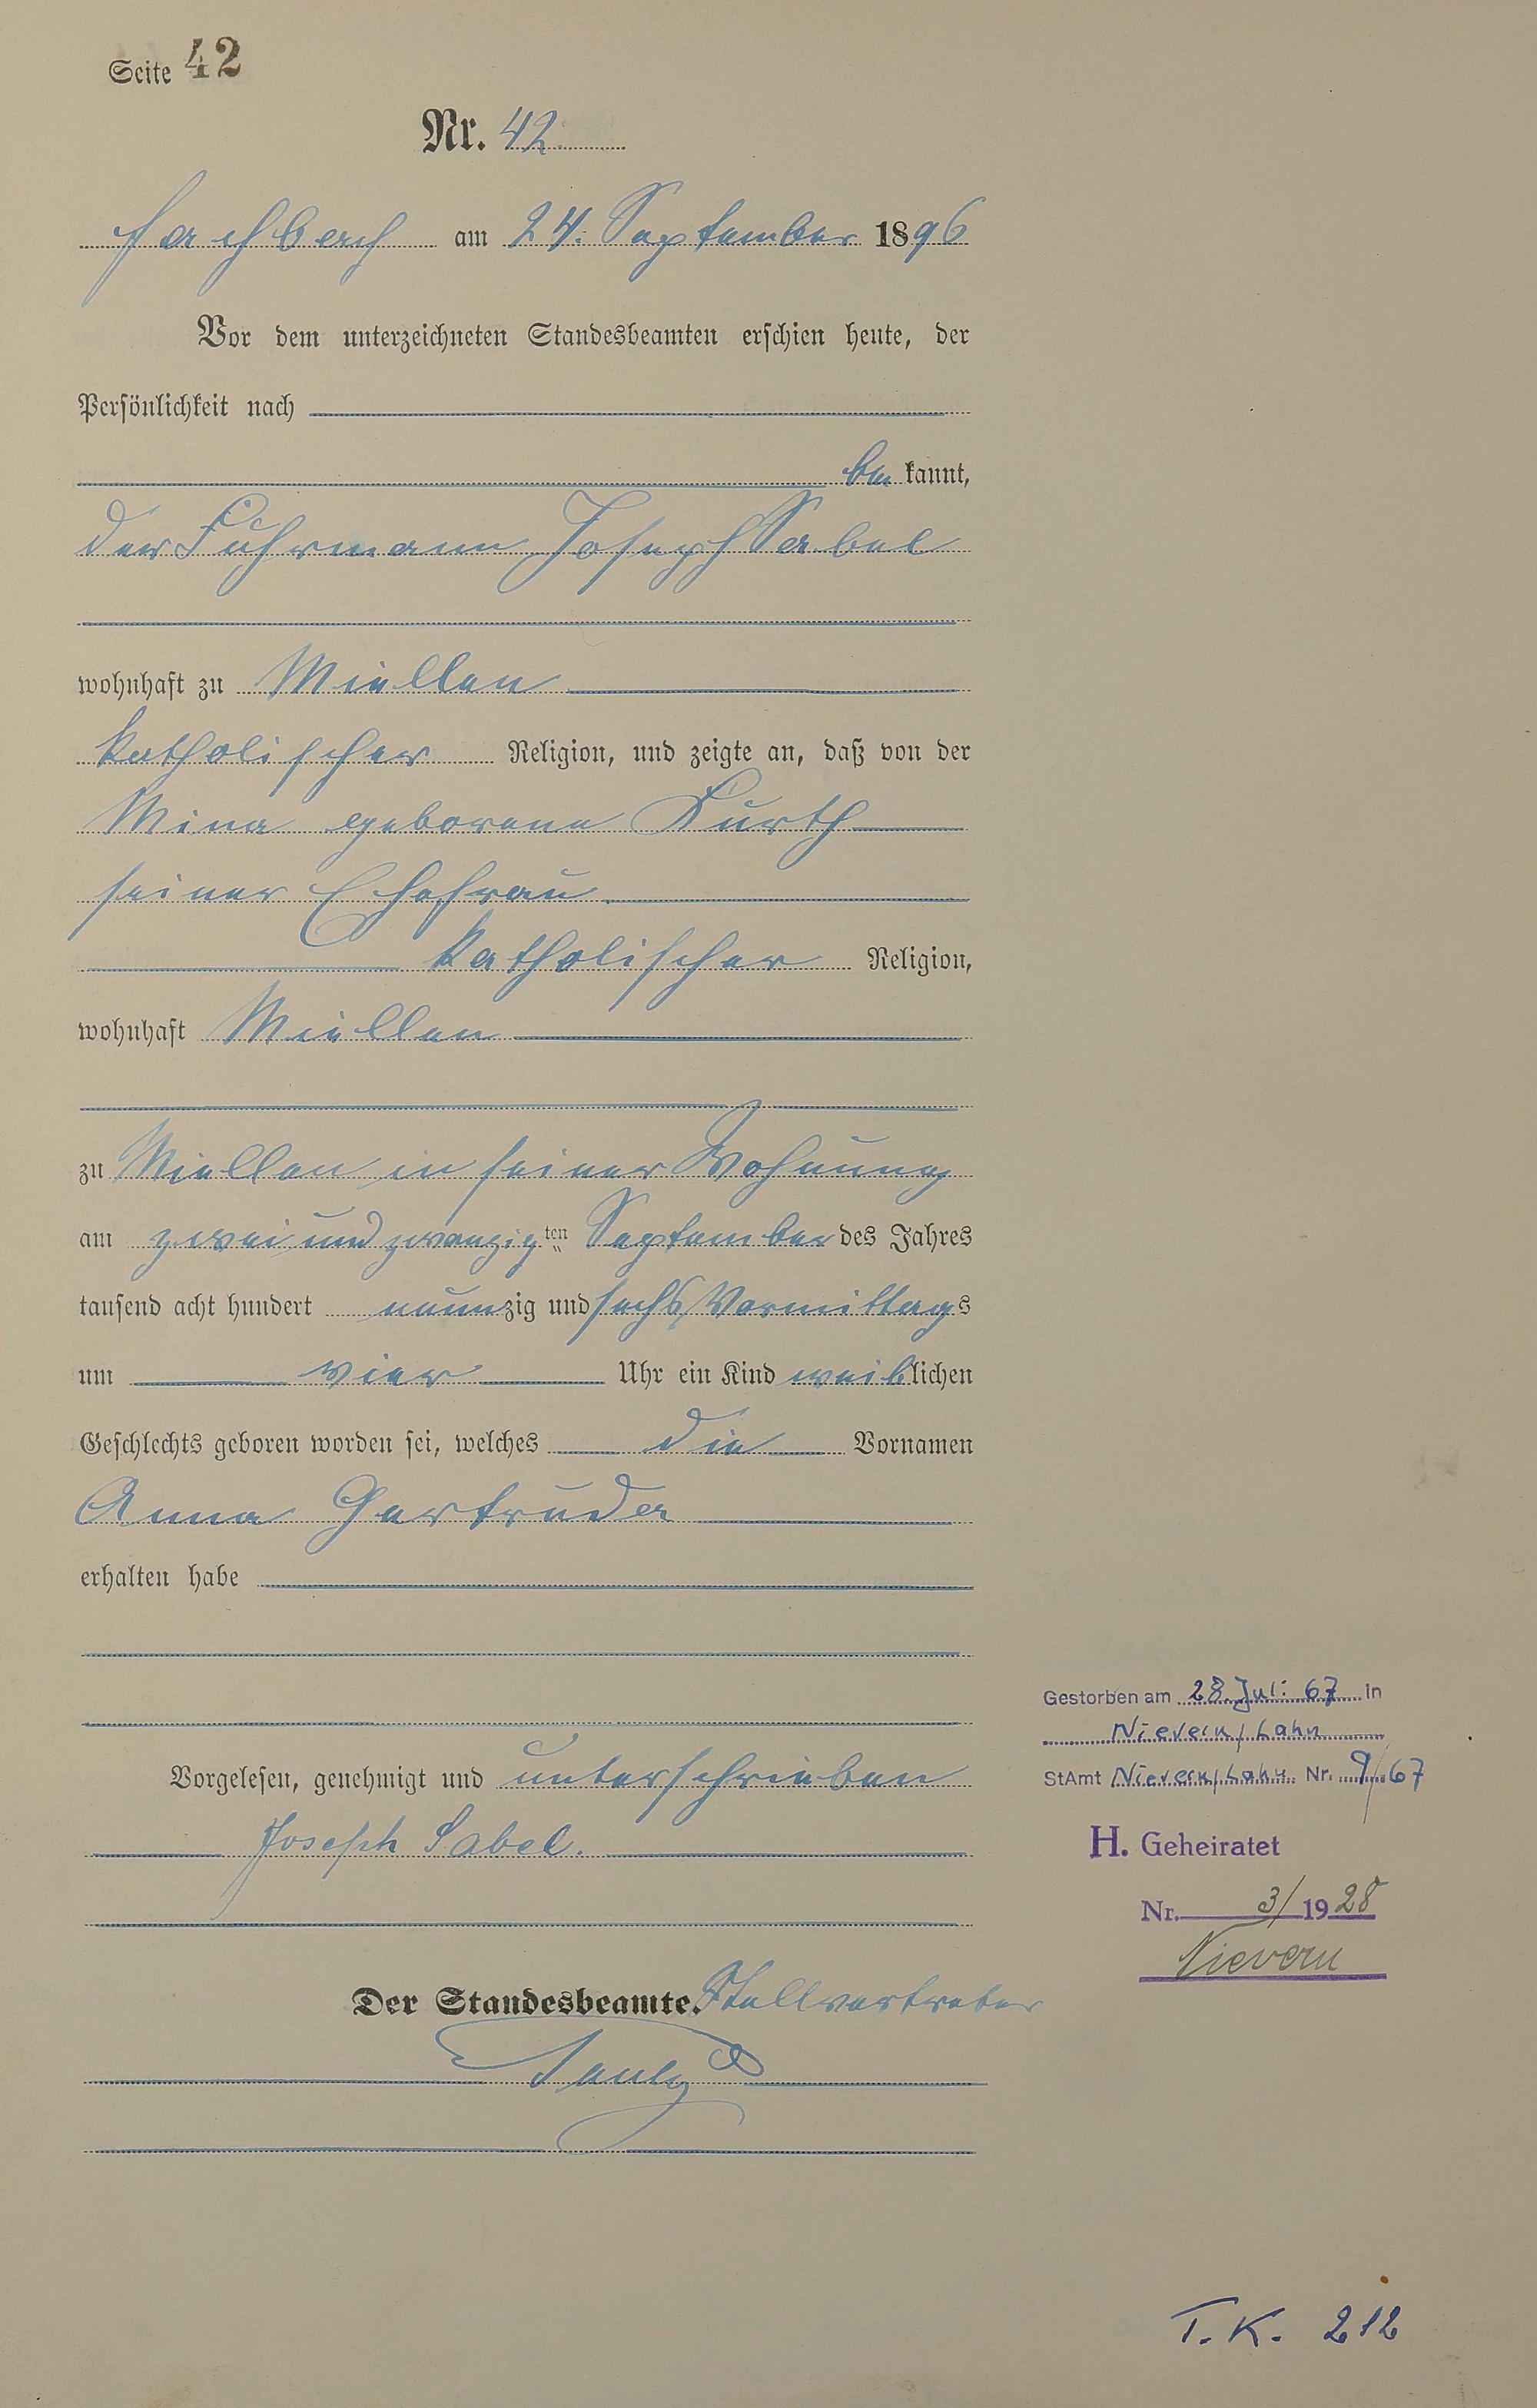 Seite 42
Nr. 42.
Fachbach am 24. September 1896
Vor dem unterzeichneten Standesbeamten erschien heute, der
Persönlichkeit nach
be kannt,
der Fuhrmann Joseph Sabel
wohnhaft zu Miellen
katholischer Religion, und zeigte an, daß von der
Mina geborene Kurth
seiner Ehefrau
katholischer Religion,
wohnhaft Miellen
zu Miellen in seiner Wohnung
am zwei und zwanzig ten September des Jahres
tausend acht hundert neunzig und sechs Vormittags
um vier Uhr ein Kind weiblichen
Geschlechts geboren worden sei, welches die Vornamen
Anna Gertruda
erhalten habe
Vorgelesen, genehmigt und unterschrieben
Joseph Sabel.
Der Standesbeamte. Stellvertreter
Pauly
Gestorben am 28. Juli 67 in
Nievern/Lahn
StAmt Nievern/Lahn Nr. 9/67
H. Geheiratet
Nr. 3/1928
Nievern
T. K. 212